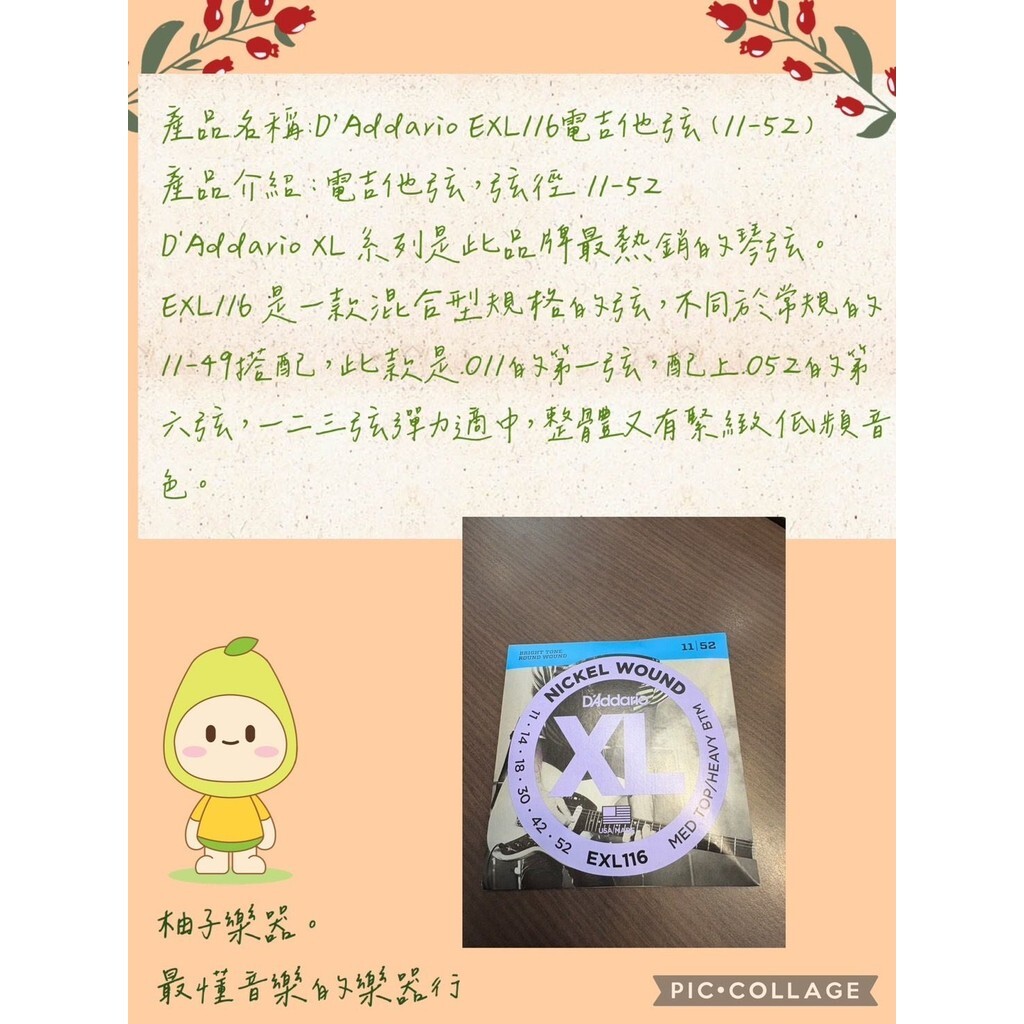 產品名稱:D'Addario EXL116電吉他弦(11-52)
產品介紹:電吉他弦,弦徑 11-52
D'Addario XL 系列是此品牌最熱銷的琴弦。
EXL116 是一款混合型規格的弦,不同於常規的
11-49搭配,此款是.011的第一弦,配上.052的第
六弦,一二三弦彈力適中,整體又有緊緻低頻音
色。
BRIGHT TONE
ROUND WOUND
11|52
NICKEL WOUND
D'Addario
XL
11・14・18・30・42・52
MED TOP/HEAVY BTM
USA MADE
EXL116
柚子樂器。
最懂音樂的樂器行
PIC•COLLAGE